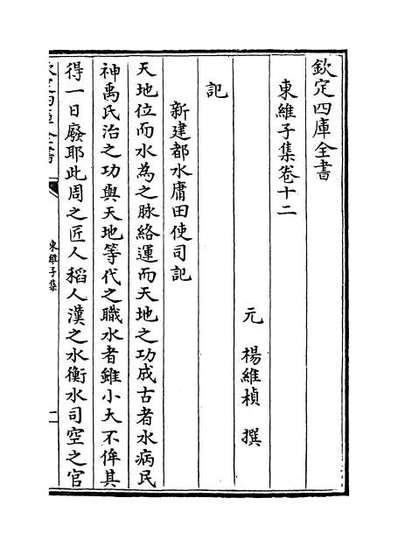 欽定四庫全書
東維子集卷十二
元 楊維楨 撰
記
新建都水庸田使司記
天地位而水為之脉絡運而天地之功成古者水病民
神禹氏治之功與天地等代之職水者雖小大不侔其
得一日廢耶此周之匠人稻人漢之水衡水司空之官
欽定四庫全書
東維子集
一